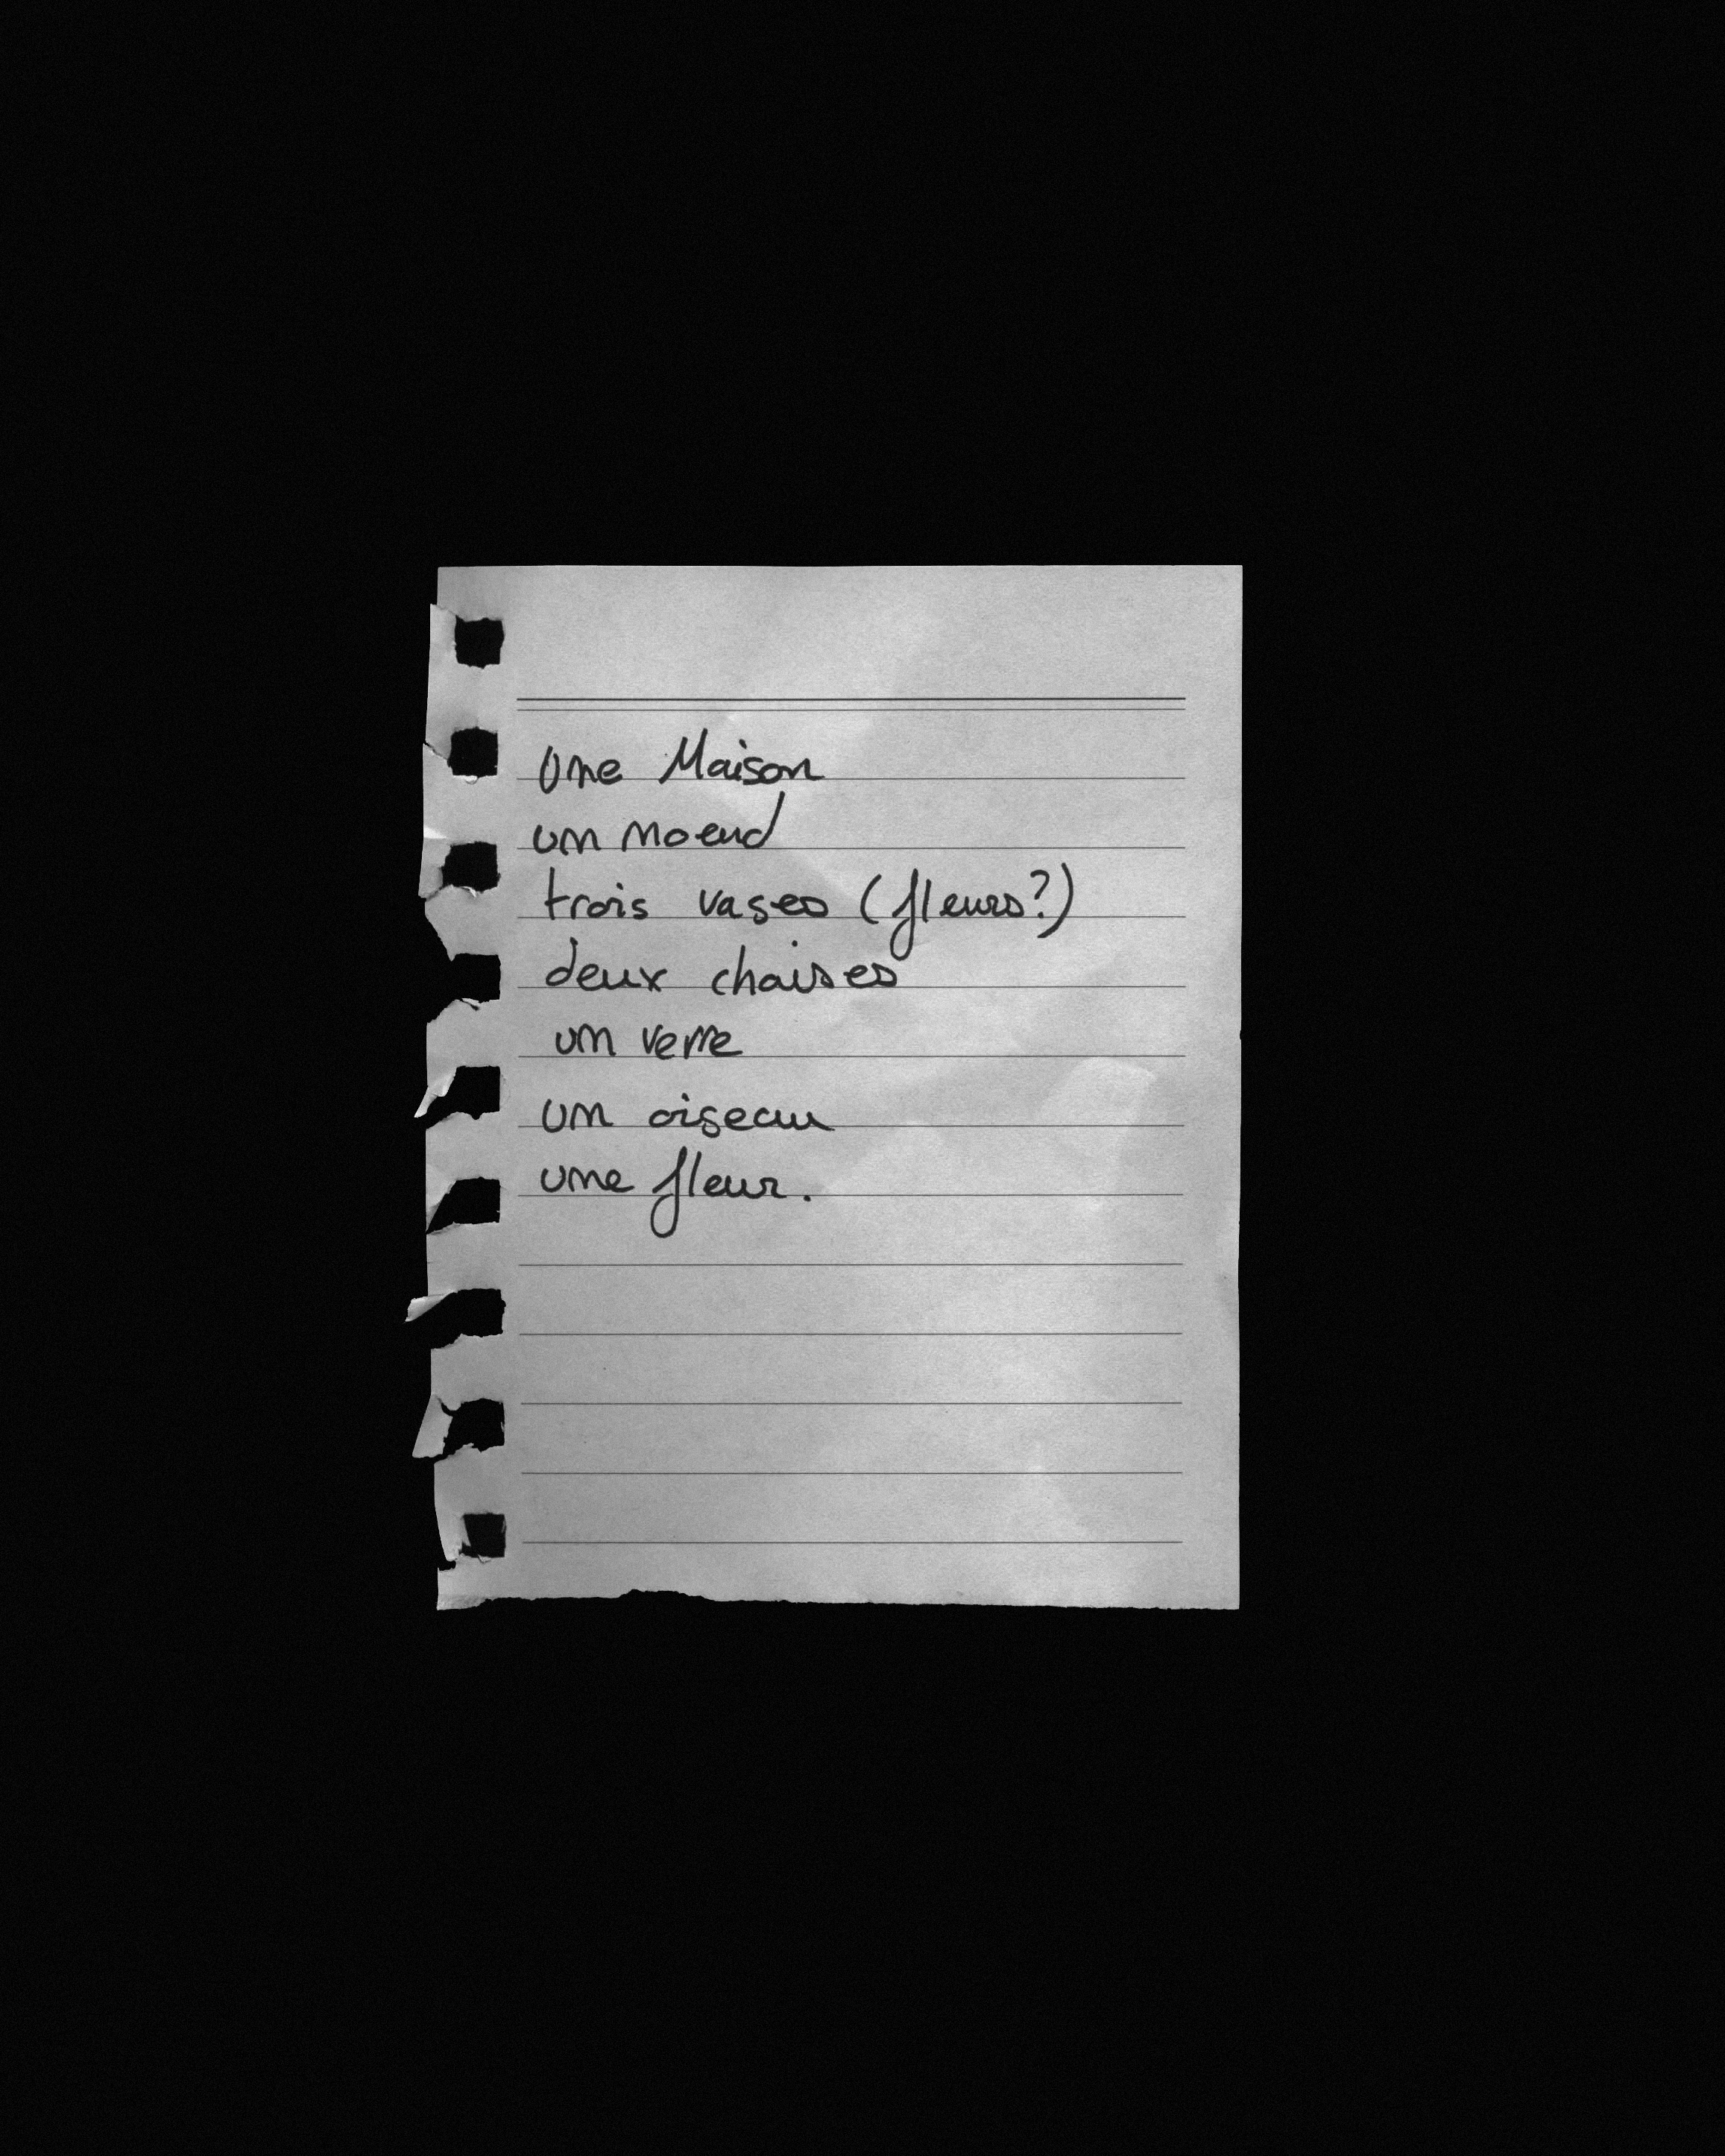 Une Maison
un noeud
trois vases (fleurs?)
deux chaises
un verre
un oiseau
une fleur.